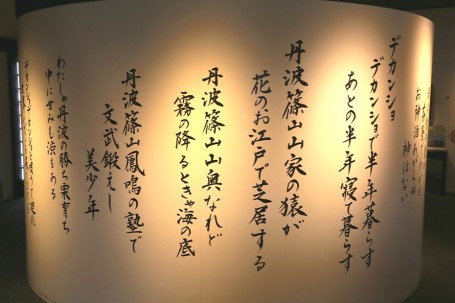 お神酒あがらぬ
神はない
デカンショ
デカンショで半年暮らす
あとの半年寝て暮らす
丹波篠山山家の猿が
花のお江戸で芝居する
丹波篠山山奥なれど
霧の降るときゃ海の底
丹波篠山鳳鳴の塾で
文武鍛えし
美少年
わたしゃ丹波の勝ち栗育ち
中に甘みも渋もある
デカンショデカンショと